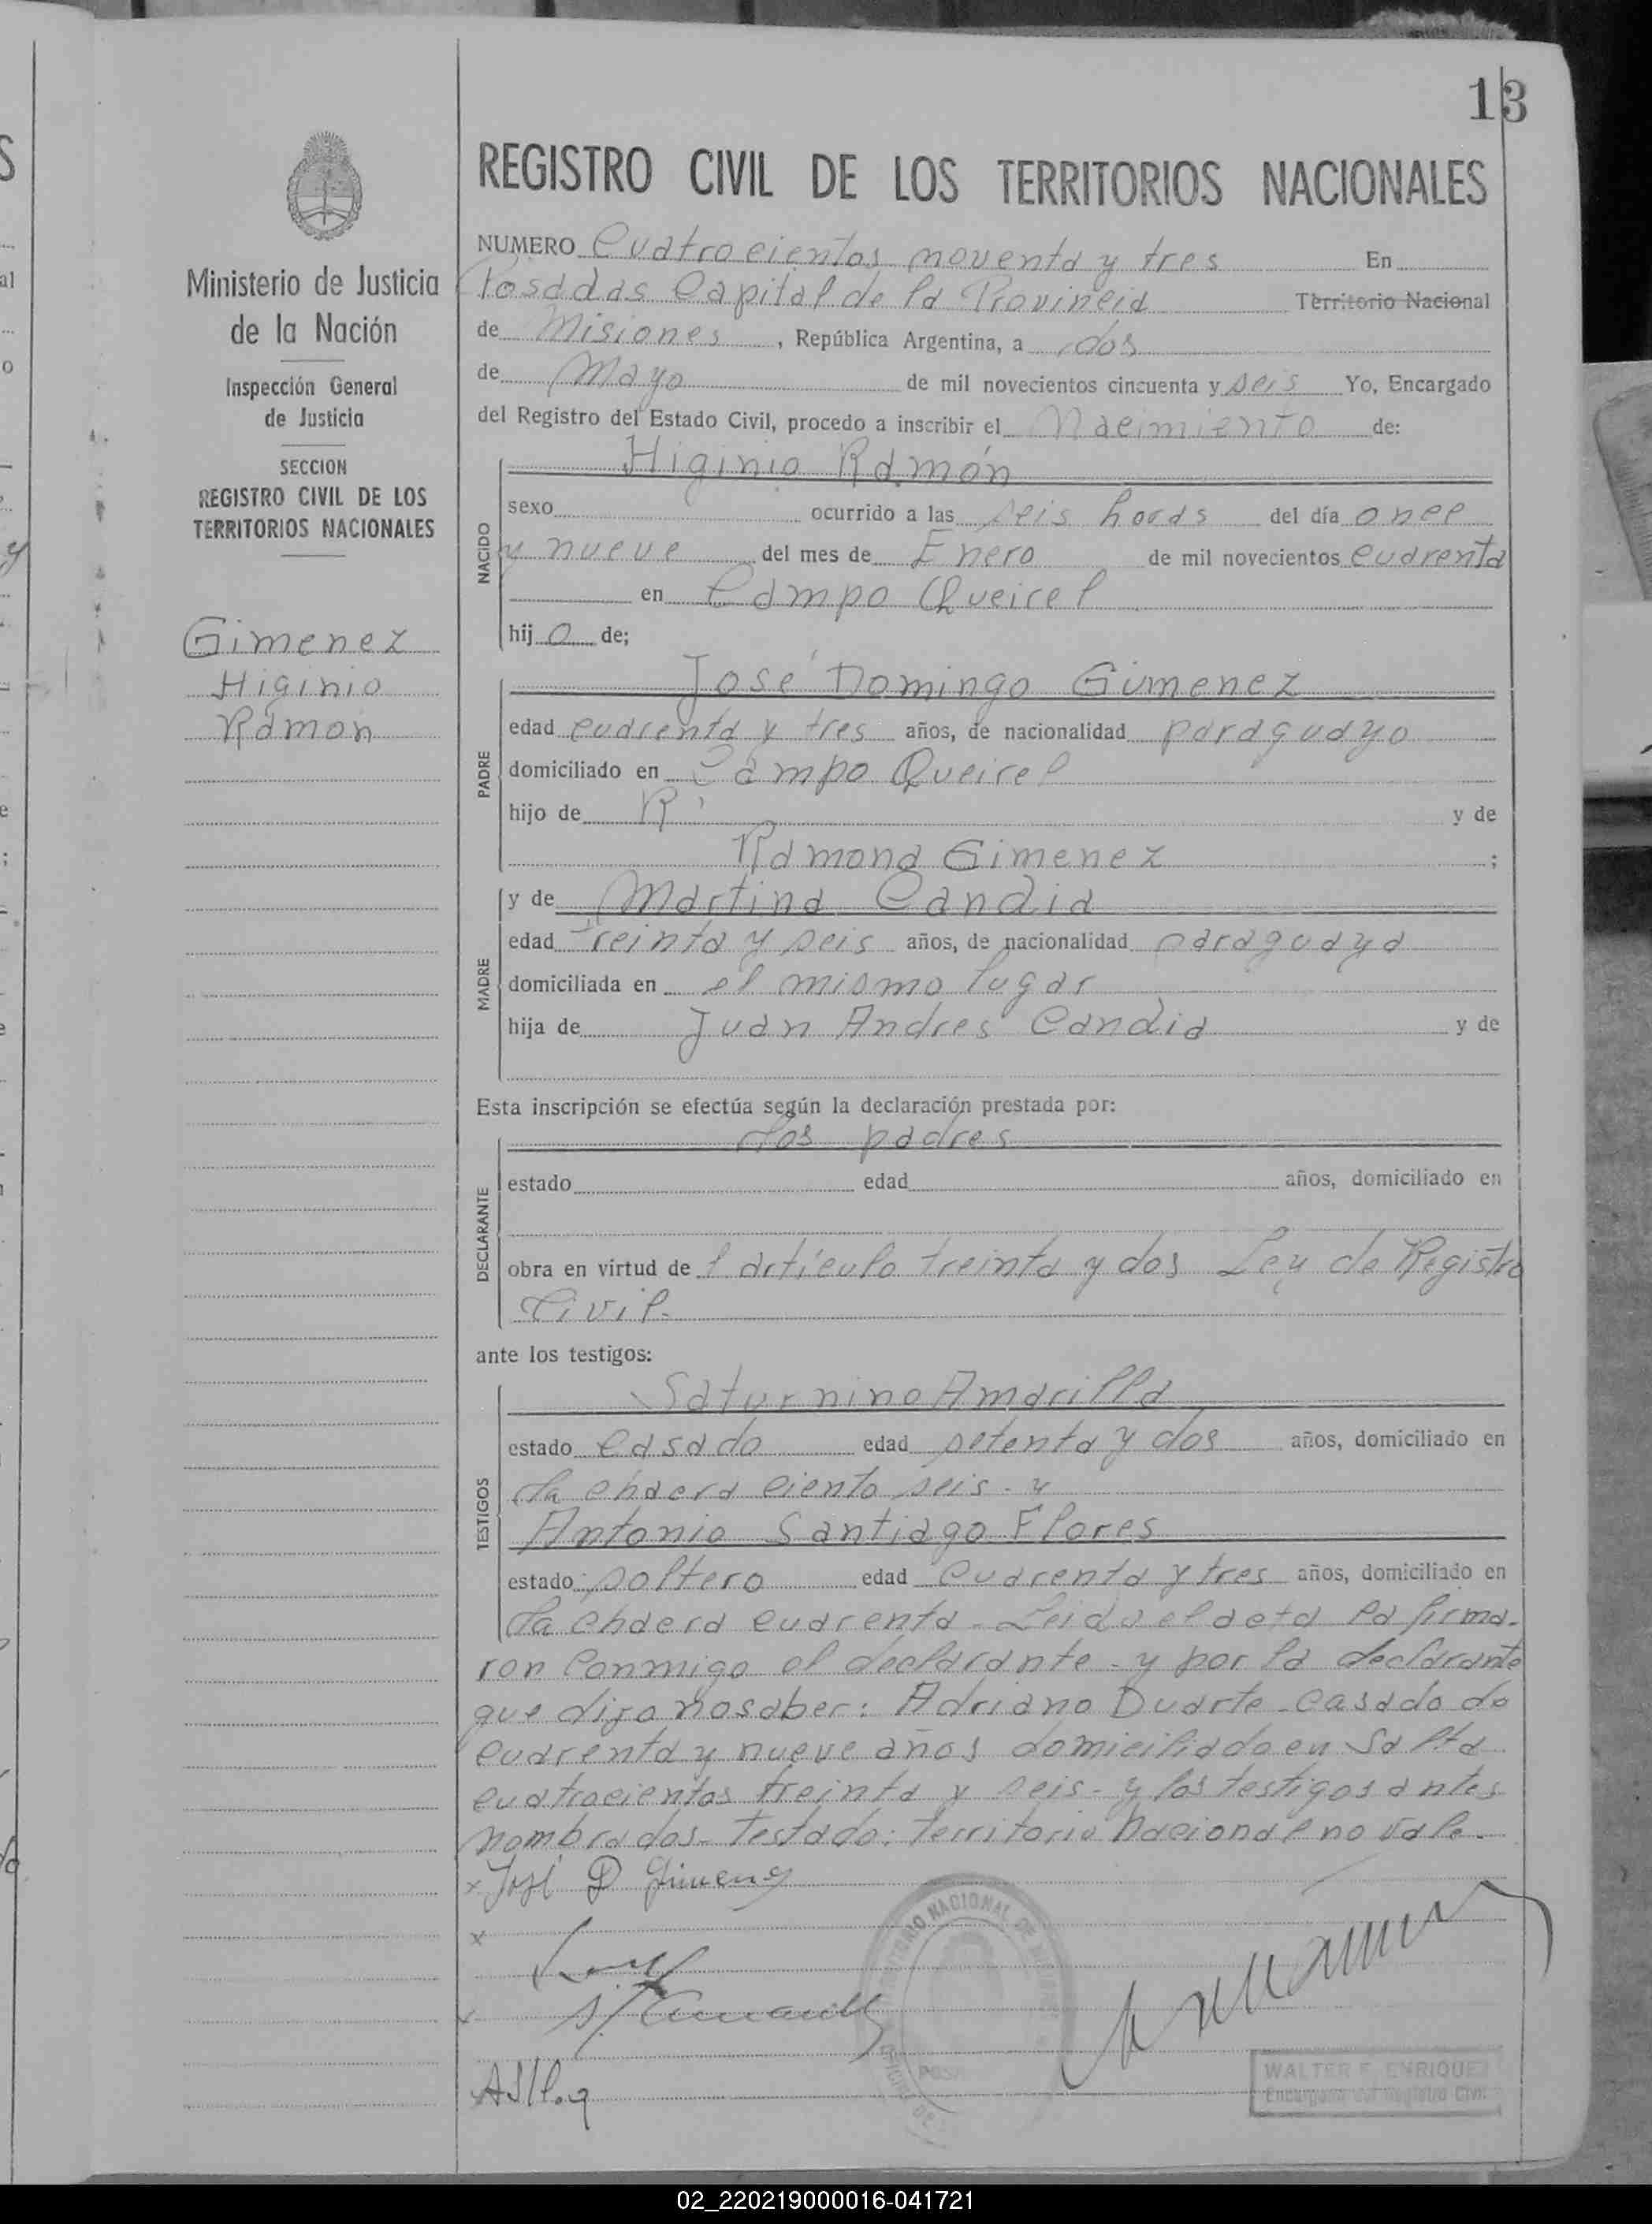 13
REGISTRO CIVIL DE LOS TERRITORIOS NACIONALES
Ministerio de Justicia
de la Nación
Inspección General
de Justicia
SECCION
REGISTRO CIVIL DE LOS
TERRITORIOS NACIONALES
Gimenez
Higinio
Ramon
NUMERO Cuatrocientos noventa y tres En
Posadas Capital de la Provincia Territorio Nacional
de Misiones, República Argentina, a dos
de Mayo de mil novecientos cincuenta y seis Yo, Encargado
del Registro del Estado Civil, procedo a inscribir el Nacimiento de:
NACIDO
Higinio Ramón
sexo ocurrido a las seis horas del día once
y nueve del mes de Enero de mil novecientos cuarenta
en Campo Queirel
hijo de;
PADRE
José Domingo Gimenez
edad cuarenta y tres años, de nacionalidad paraguayo
domiciliado en Campo Queirel
hijo de R y de
Ramona Gimenez ;
MADRE
y de Martina Candia
edad treinta y seis años, de nacionalidad paraguaya
domiciliada en el mismo lugar
hija de Juan Andres Candia y de
Esta inscripción se efectúa según la declaración prestada por:
DECLARANTE
los padres
estado edad años, domiciliado en
obra en virtud de l artículo treinta y dos Ley de Registro
Civil.
ante los testigos:
TESTIGOS
Saturnino Amarilla
estado casado edad setenta y dos años, domiciliado en
la chacra ciento seis - y
Antonio Santiago Flores
estado soltero edad cuarenta y tres años, domiciliado en
la chacra cuarenta - Leida el acta la firma-
ron conmigo el declarante - y por la declarante
que dijo no saber: Adriano Duarte - casado de
cuarenta y nueve años domiciliado en Salta
cuatrocientos treinta y seis - y los testigos antes
nombrados - Testado: territorio nacional no vale.
x José D Gimenez
x
WALTER F. ENRIQUEZ
Encargado del Registro Civil
02_220219000016-041721